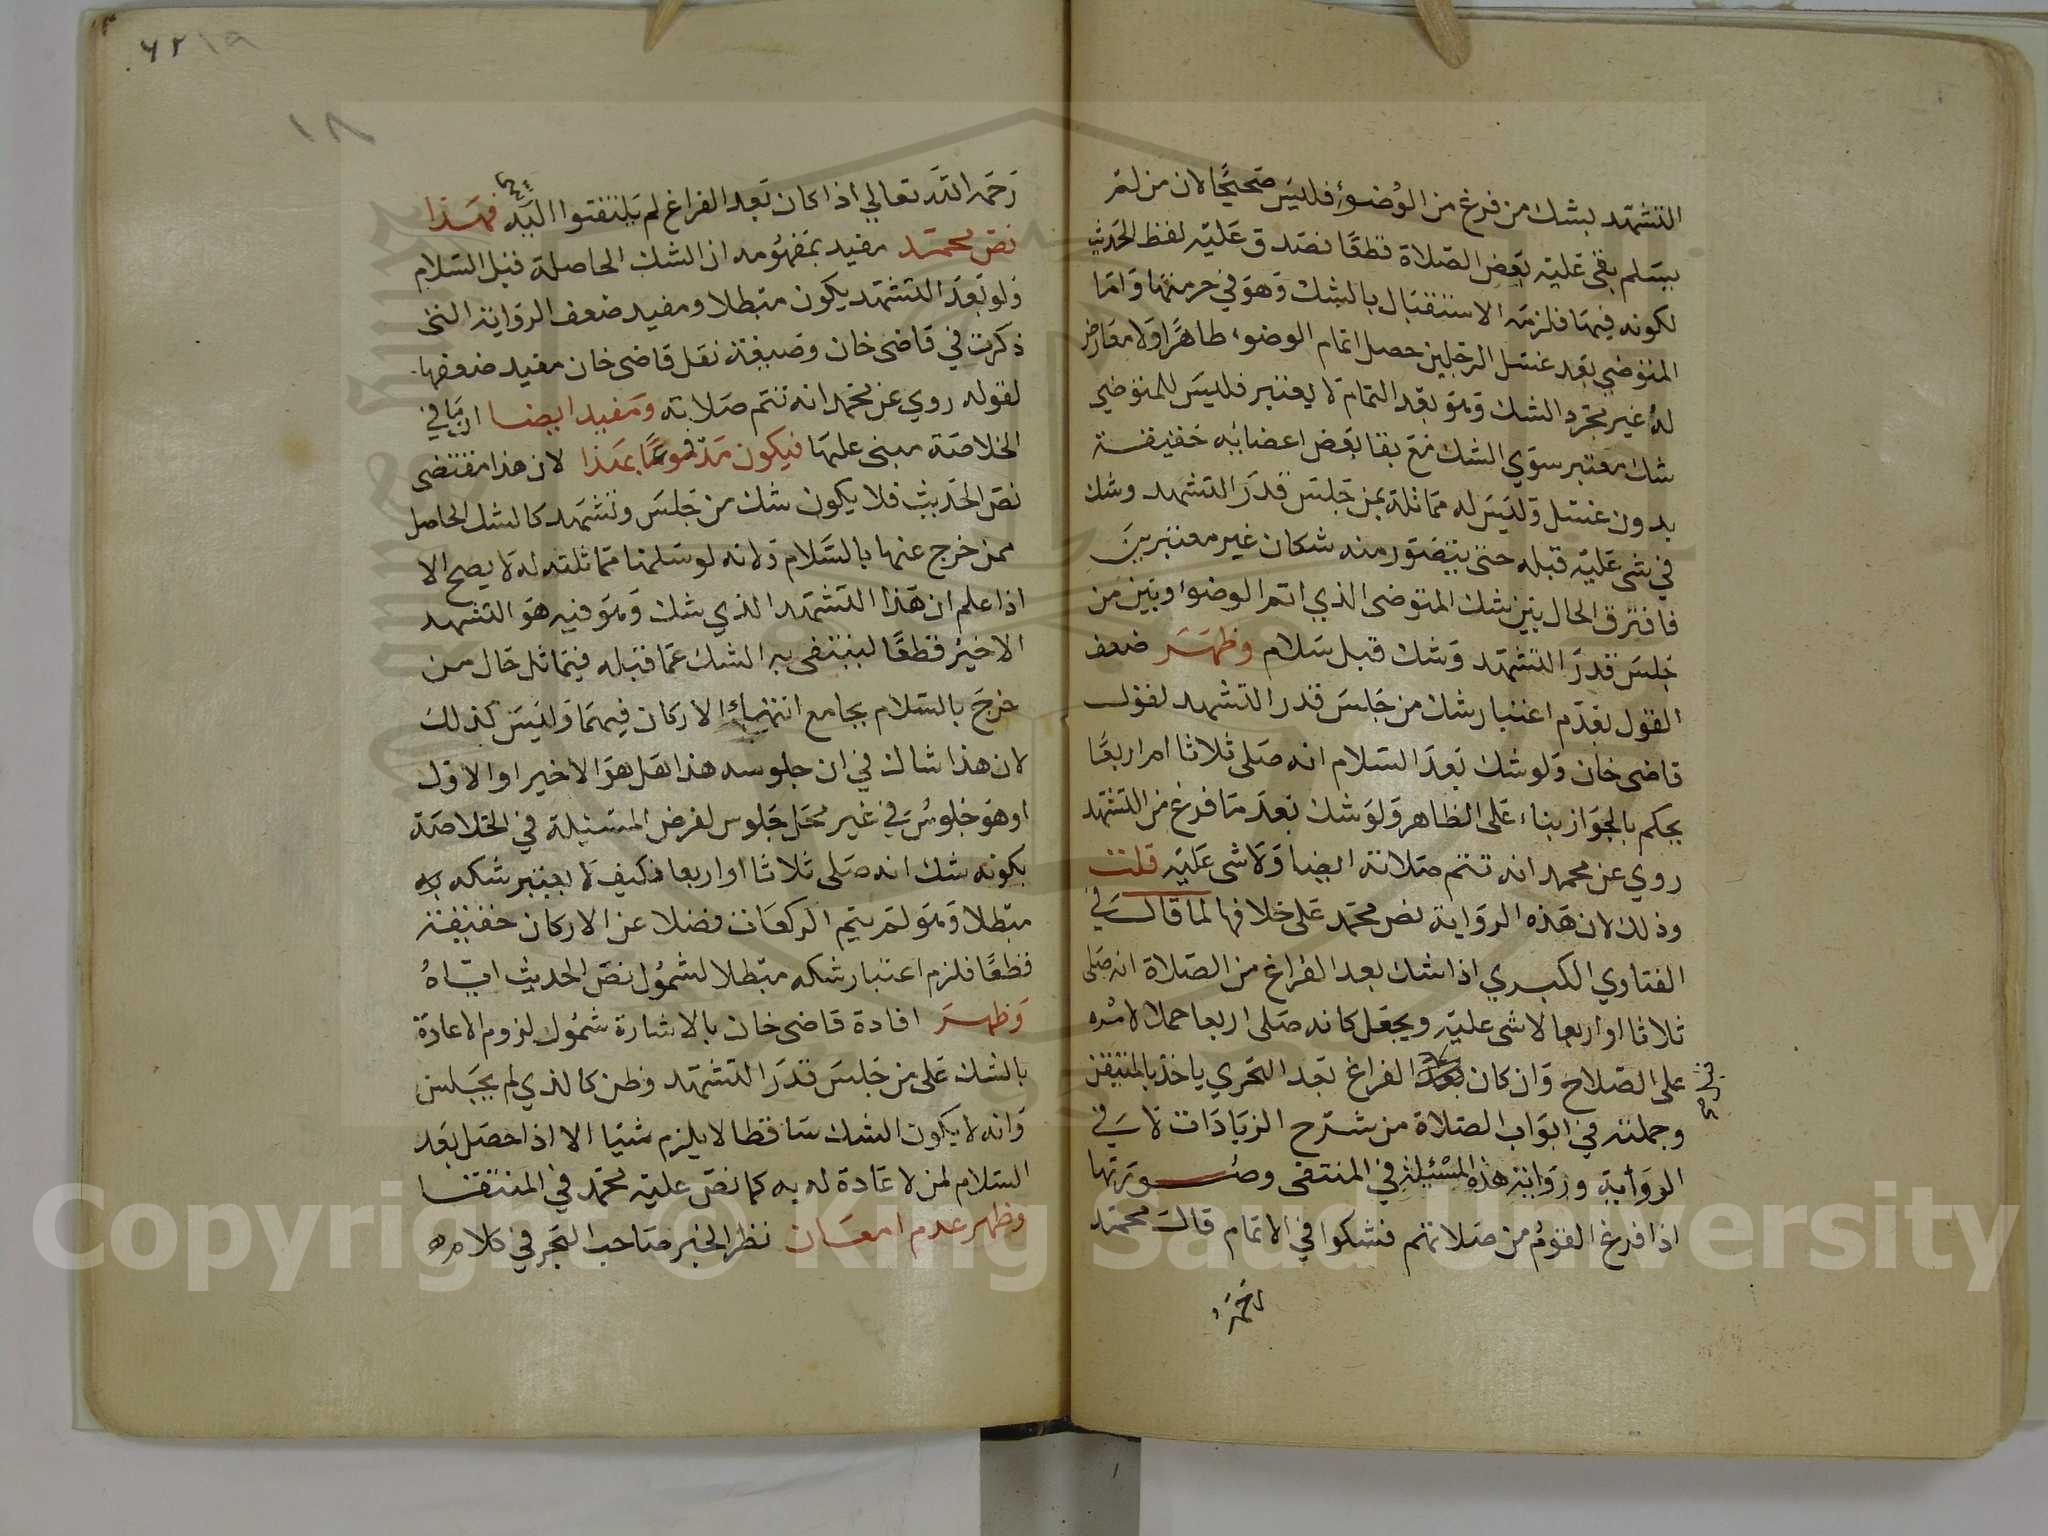 التشهد بشك من فرغ من الوضوء فليس صحيحا لان من لم
يسلم بقي عليه بعض الصلاة قطعا فصدق عليه لفظ الحديث
لكونه فيها فلزمه الاستقبال بالشك وهو في حرمتها واما
المتوضي بعد غسل الرجلين حصل اتمام الوضوء طاهرا ولا معارض
له غير مجرد الشك وهو بعد التمام لا يعتبر فليس للمتوضي
شك معتبر سوي الشك مع بقا بعض اعضائه حقيقة
بدون غسل وليس له مماثلة بمن جلس قدر التشهد وشك
في شي عليه قبله حتى يتصور منه شكان غير معتبرين
فافترق الحال بين شك المتوضى الذي اتم الوضوء وبين من
جلس قدر التشهد وشك قبل سلام وظهر ضعف
القول بعدم اعتبار شك من جلس قدر التشهد لقول
قاضى خان ولو شك بعد السلام انه صلى ثلاثا ام اربعا
يحكم بالجواز بناء على الظاهر ولو شك بعد ما فرغ من التشهد
روي عن محمد انه تتم صلاته ايضا ولا شى عليه قلت
وذلك لان هذه الرواية نص محمد على خلافها لما قال في
الفتاوي الكبري اذا شك بعد الفراغ من الصلاة انه صلى
ثلاثا او اربعا لا شى عليه ويجعل كانه صلى اربعا حملا لامره
على الصلاح وان كان بعد الفراغ بعد التحري ياخذ بالمتيقن
وجملته في ابواب الصلاة من شرح الزيادات لا في
الرواية ورواية هذه المسئلة في المنتقى وصورتها
اذا فرغ القوم من صلاتهم فشكوا في الاتمام قال محمد
رحمه
٦٢ ١٩
١٨
رحمه الله تعالي اذا كان بعد الفراغ لم يلتفتوا اليه فهذا
نص محمد مفيد بمفهومه ان الشك الحاصلة قبل السلام
ولو بعد التشهد يكون مبطلا ومفيد ضعف الرواية التى
ذكرت في قاضى خان وصيغة نقل قاضى خان مفيد ضعفها
لقوله روي عن محمد انه تتم صلاته ومفيد ايضا ان ما في
الخلاصة مبنى عليها فيكون مدفوعا بهذا لان هذا مقتضى
نص الحديث فلا يكون شك من جلس وتشهد كالشك الحاصل
ممن خرج عنها بالسلام ولانه لو سلمنا مماثلته له لا يصح الا
اذا علم ان هذا التشهد الذي شك وهو فيه هو التشهد
الاخير قطعا لينتفى به الشك عما قبله فيماثل حال من
خرج بالسلام بجامع انتهاء الاركان فيهما وليس كذلك
لان هذا شاك في ان جلوسه هذا هل هو الاخير او الاول
او هو جلوس في غير محل جلوس لفرض المسئلة في الخلاصة
بكونه شك انه صلى ثلاثا او اربعا فكيف لا يعتبر شكه
مبطلا وهو لم يتم الركعات فضلا عن الاركان حقيقة
قطعا فلزم اعتبار شكه مبطلا لشمول نص الحديث اياه
وظهر افادة قاضى خان بالاشارة شمول لزوم الاعادة
بالشك على من جلس قدر التشهد وظن كالذي لم يجلس
وانه لا يكون الشك ساقطا لا يلزم شيا الا اذا حصل بعد
السلام لمن لا عادة له به كما نص عليه محمد في المنتقا
وظهر عدم امعان نظر الخبر صاحب البحر في كلامه
Copyright © King Saud University